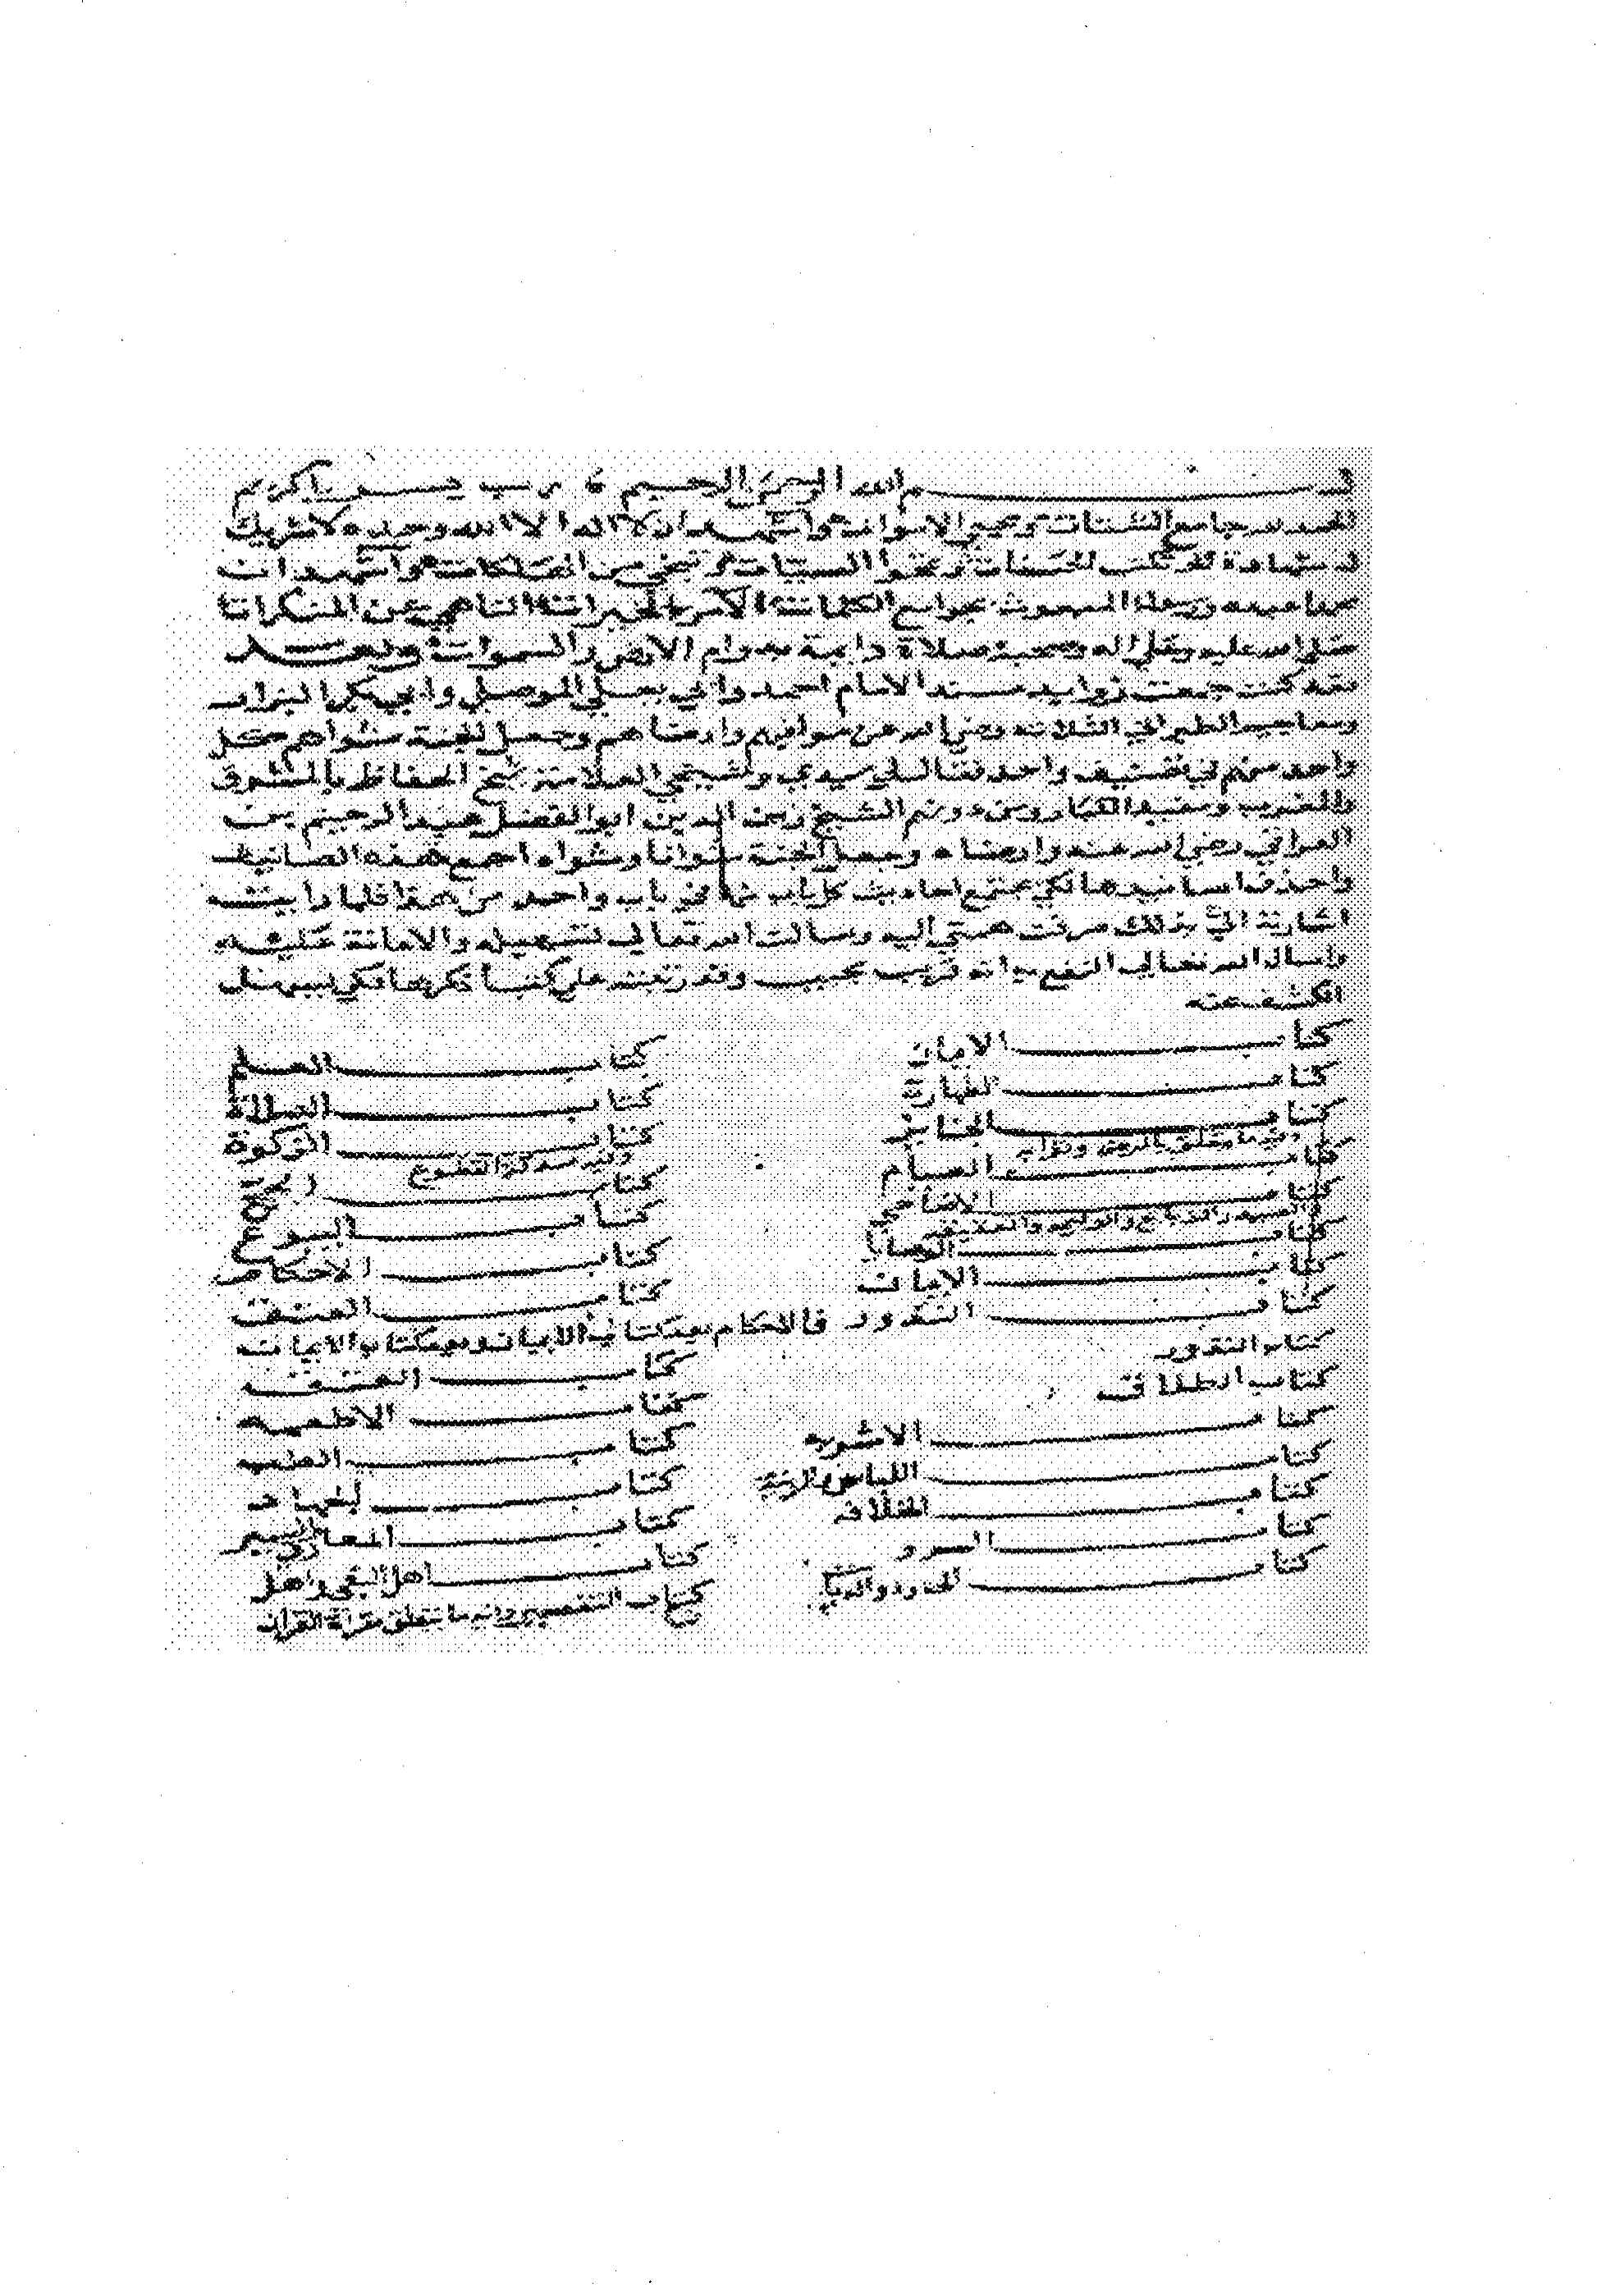 بسم الله الرحمن الرحيم رب يسر يا كريم
الحمد لله جامع الشتات ومحيي الاموات واشهد ان لا اله الا الله وحده لا شريك
له شهادة تكتب الحسنات وتمحوا السيئات وتنجي من المهلكات واشهد ان
محمدا عبده ورسوله المبعوث بجوامع الكلمات الآمر بالخيرات الناهي عن المنكرات
صلى الله عليه وعلى اله وصحبه صلاة دايمة بدوام الارض والسموات وبعد
فقد كنت جمعت زوايد مسند الامام احمد وابي يعلى الموصلي وابي بكر البزار
ومعاجيم الطبراني الثلاثة رضي الله عن مؤلفيهم وارضاهم وجعل الجنة مثواهم كل
واحد منهم في تصنيف واحد فقال لي سيدي وشيخي العلامة شيخ الحفاظ بالمشرق
والمغرب ومفيد الكبار ومن دونهم الشيخ زين الدين ابو الفضل عبد الرحيم بن
العراقي رضي الله عنه وارضاه وجعل الجنة مثوانا ومثواه اجمع هذه التصانيف
واحذف اسانيدها لكي يجتمع احاديث كل باب منها في باب واحد من هذا فلما رايت
اشارته الي بذلك صرفت همتي اليه وسالت الله تعالى تسهيله والاعانة عليه
واسال الله تعالى النفع به انه قريب مجيب وقد رتبته على كتب اذكرها لكي يسهل
الكشف عنه
كتاب الايمان كتاب العلم
كتاب الطهارة كتاب الصلاة
كتاب الجنايز كتاب الزكوة
وفيه ما يتعلق بالمرض وثوابه وفيه صدقة التطوع
كتاب الصيام كتاب الحج
كتاب الاضاحي كتاب البيوع
والصيد والذبايح والوليمة والعقيقة
كتاب الوصايا كتاب الاحكام
كتاب الايمان كتاب العتق
كتاب النذور فالاحكام بعد كتاب الايمان وبعد كتاب الايمان
كتاب النذور كتاب العتق
كتاب الطلاق كتاب الاطعمه
كتاب الاشربه كتاب الطب
كتاب اللباس والزينة كتاب
كتاب الخلافه كتاب المغازي والسير
كتاب كتاب اهل البغي واهل
كتاب الحدود والديات كتاب التفسير وفيه ما يتعلق بقراة القران